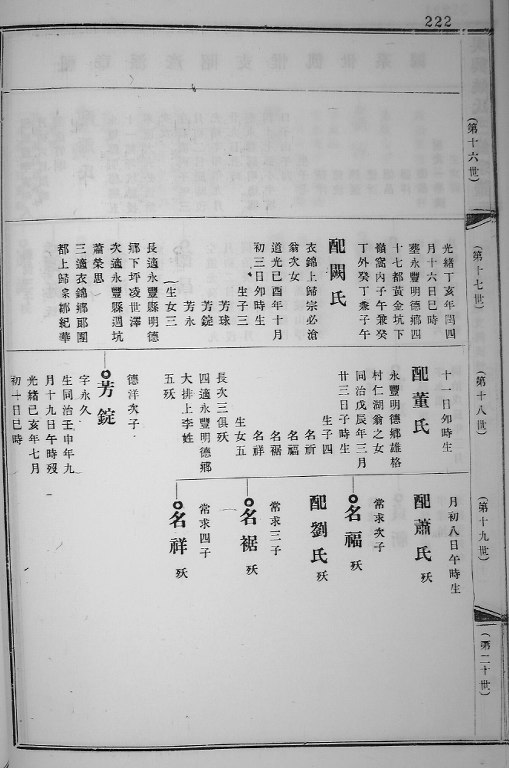 222
(第十六世)
(第十七世)
光緒丁亥年閏四
月十六日巳時
塟永豐明德鄉四
十七都黃金坑下
嶺窩內子午兼癸
丁外癸丁兼子午
配闕氏
衣錦上歸宗必滄
翁次女
道光己酉年十月
初三日卯時生
生子三
芳球
芳錠
芳永
生女三
長適永豐縣明德
鄉下坪淩世澤
次適永豐縣遇坑
蕭榮思
三適衣錦鄉耶團
都上歸象鄉紀華
(第十八世)
十一日卯時生
配董氏
永豐明德鄉雄格
村仁湖翁之女
同治戊辰年三月
廿三日子時生
生子四
名祈
名福
名裾
名祥
生女五
長次三俱殀
四適永豐明德鄉
大排上李姓
五殀
德洋次子
芳錠
字永久
生同治壬申年九
月十九日午時歿
光緒己亥年七月
初十日巳時
(第十九世)
月初八日午時生
配蕭氏 殀
常求次子
名福 殀
配劉氏 殀
常求三子
名裾 殀
常求四子
名祥 殀
(第二十世)